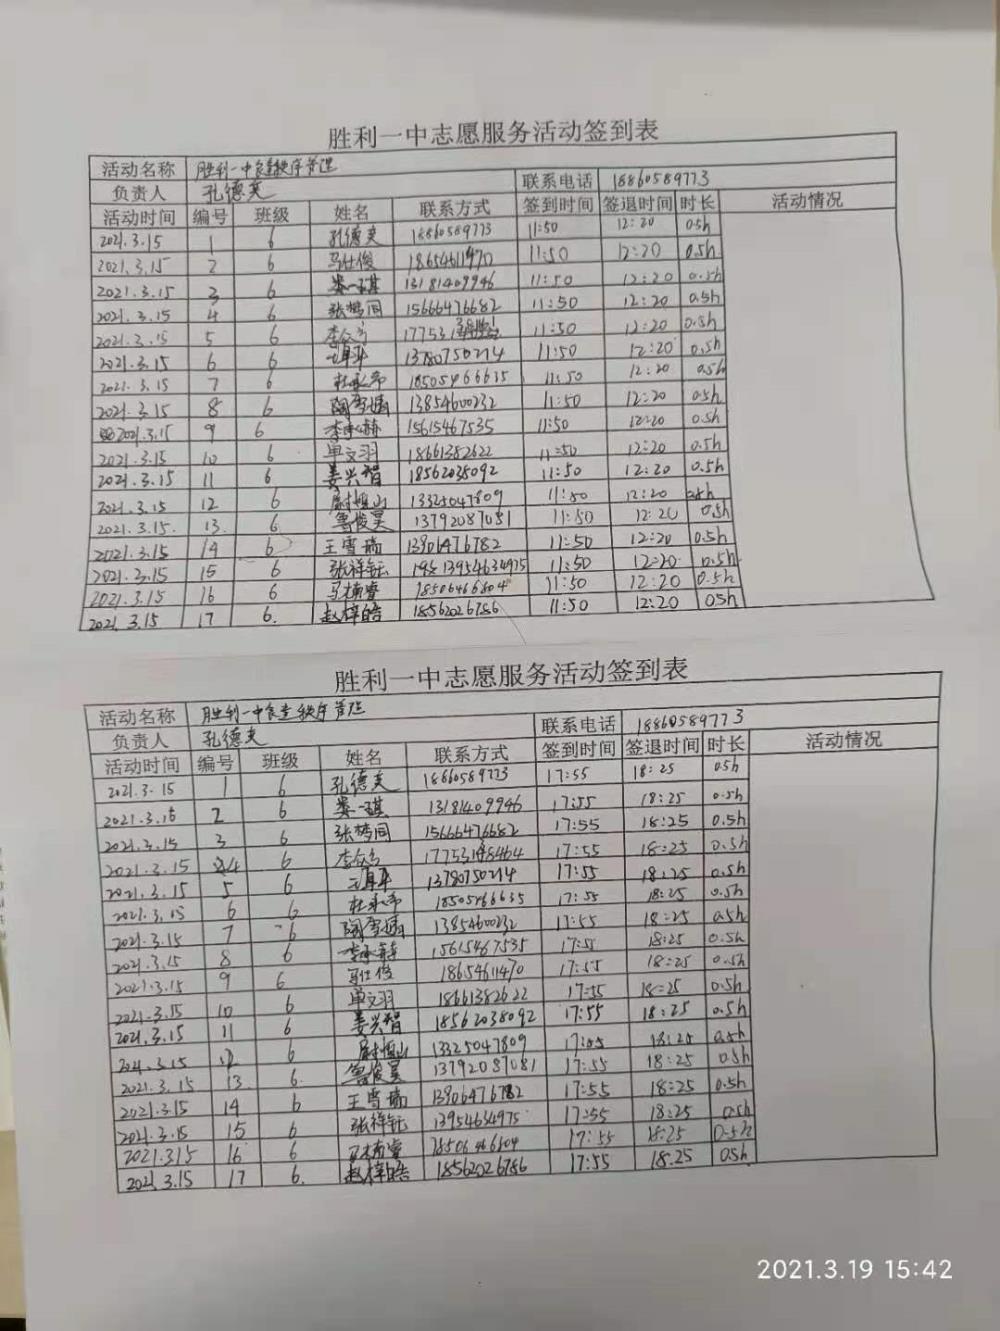 胜利一中志愿服务活动签到表
活动名称 胜利一中食堂秩序管理
负责人 孔德 联系电话 18860589773
活动时间 编号 班级 姓名 联系方式 签到时间 签退时间 时长 活动情况
2021.3.15 1 6 孔德 18860589773 11:50 12:20 0.5h
2021.3.15 2 6 马仕俊 18654611470 11:50 12:20 0.5h
2021.3.15 3 6 娄一琪 13181409946 11:50 12:20 0.5h
2021.3.15 4 6 张梦同 15666476682 11:50 12:20 0.5h
2021.3.15 5 6 11:50 12:20 0.5h
2021.3.15 6 6 13780750214 11:50 12:20 0.5h
2021.3.15 7 6 杜承希 18505466635 11:50 12:20 0.5h
2021.3.15 8 6 陶雪 13854600232 11:50 12:20 0.5h
2021.3.15 9 6 15615467535 11:50 12:20 0.5h
2021.3.15 10 6 单文羽 18661382622 11:50 12:20 0.5h
2021.3.15 11 6 姜兴智 18562038092 11:50 12:20 0.5h
2021.3.15 12 6 13325047809 11:50 12:20 0.5h
2021.3.15. 13. 6. 鲁俊昊 13792087081 11:50 12:20 0.5h
2021.3.15 14 6 王雪瑞 13906476782 11:50 12:20 0.5h
2021.3.15 15 6 张祥钰 13954634975 11:50 12:20 0.5h
2021.3.15 16 6 马楠睿 18506466604 11:50 12:20 0.5h
2021.3.15 17 6. 赵梓皓 18562026786 11:50 12:20 0.5h
胜利一中志愿服务活动签到表
活动名称 胜利一中食堂秩序管理
负责人 孔德 联系电话 18860589773
活动时间 编号 班级 姓名 联系方式 签到时间 签退时间 时长 活动情况
2021.3.15 1 6 孔德 18860589773 17:55 18:25 0.5h
2 6 娄一琪 13181409946 17:55 18:25 0.5h
2021.3.15 3 6 张梦同 15666476682 17:55 18:25 0.5h
2021.3.15 4 6 17:55 18:25 0.5h
2021.3.15 5 6 13780750214 17:55 18:25 0.5h
2021.3.15 6 6 杜承希 18505466635 17:55 18:25 0.5h
2021.3.15 7 6 陶雪 13854600232 17:55 18:25 0.5h
2021.3.15 8 6 15615467535 17:55 18:25 0.5h
2021.3.15 9 6 马仕俊 18654611470 17:55 18:25 0.5h
2021.3.15 10 6 单文羽 18661382622 17:55 18:25 0.5h
2021.3.15 11 6 姜兴智 18562038092 17:55 18:25 0.5h
2021.3.15 12 6 13325047809 17:55 18:25 0.5h
2021.3.15 13 6. 鲁俊昊 13792087081 17:55 18:25 0.5h
2021.3.15 14 6 王雪瑞 13906476782 17:55 18:25 0.5h
2021.3.15 15 6 张祥钰 13954634975 17:55 18:25 0.5h
2021.3.15 16 6 马楠睿 18506466604 17:55 18:25 0.5h
2021.3.15 17 6. 赵梓皓 18562026786 17:55 18:25 0.5h
2021.3.19 15:42